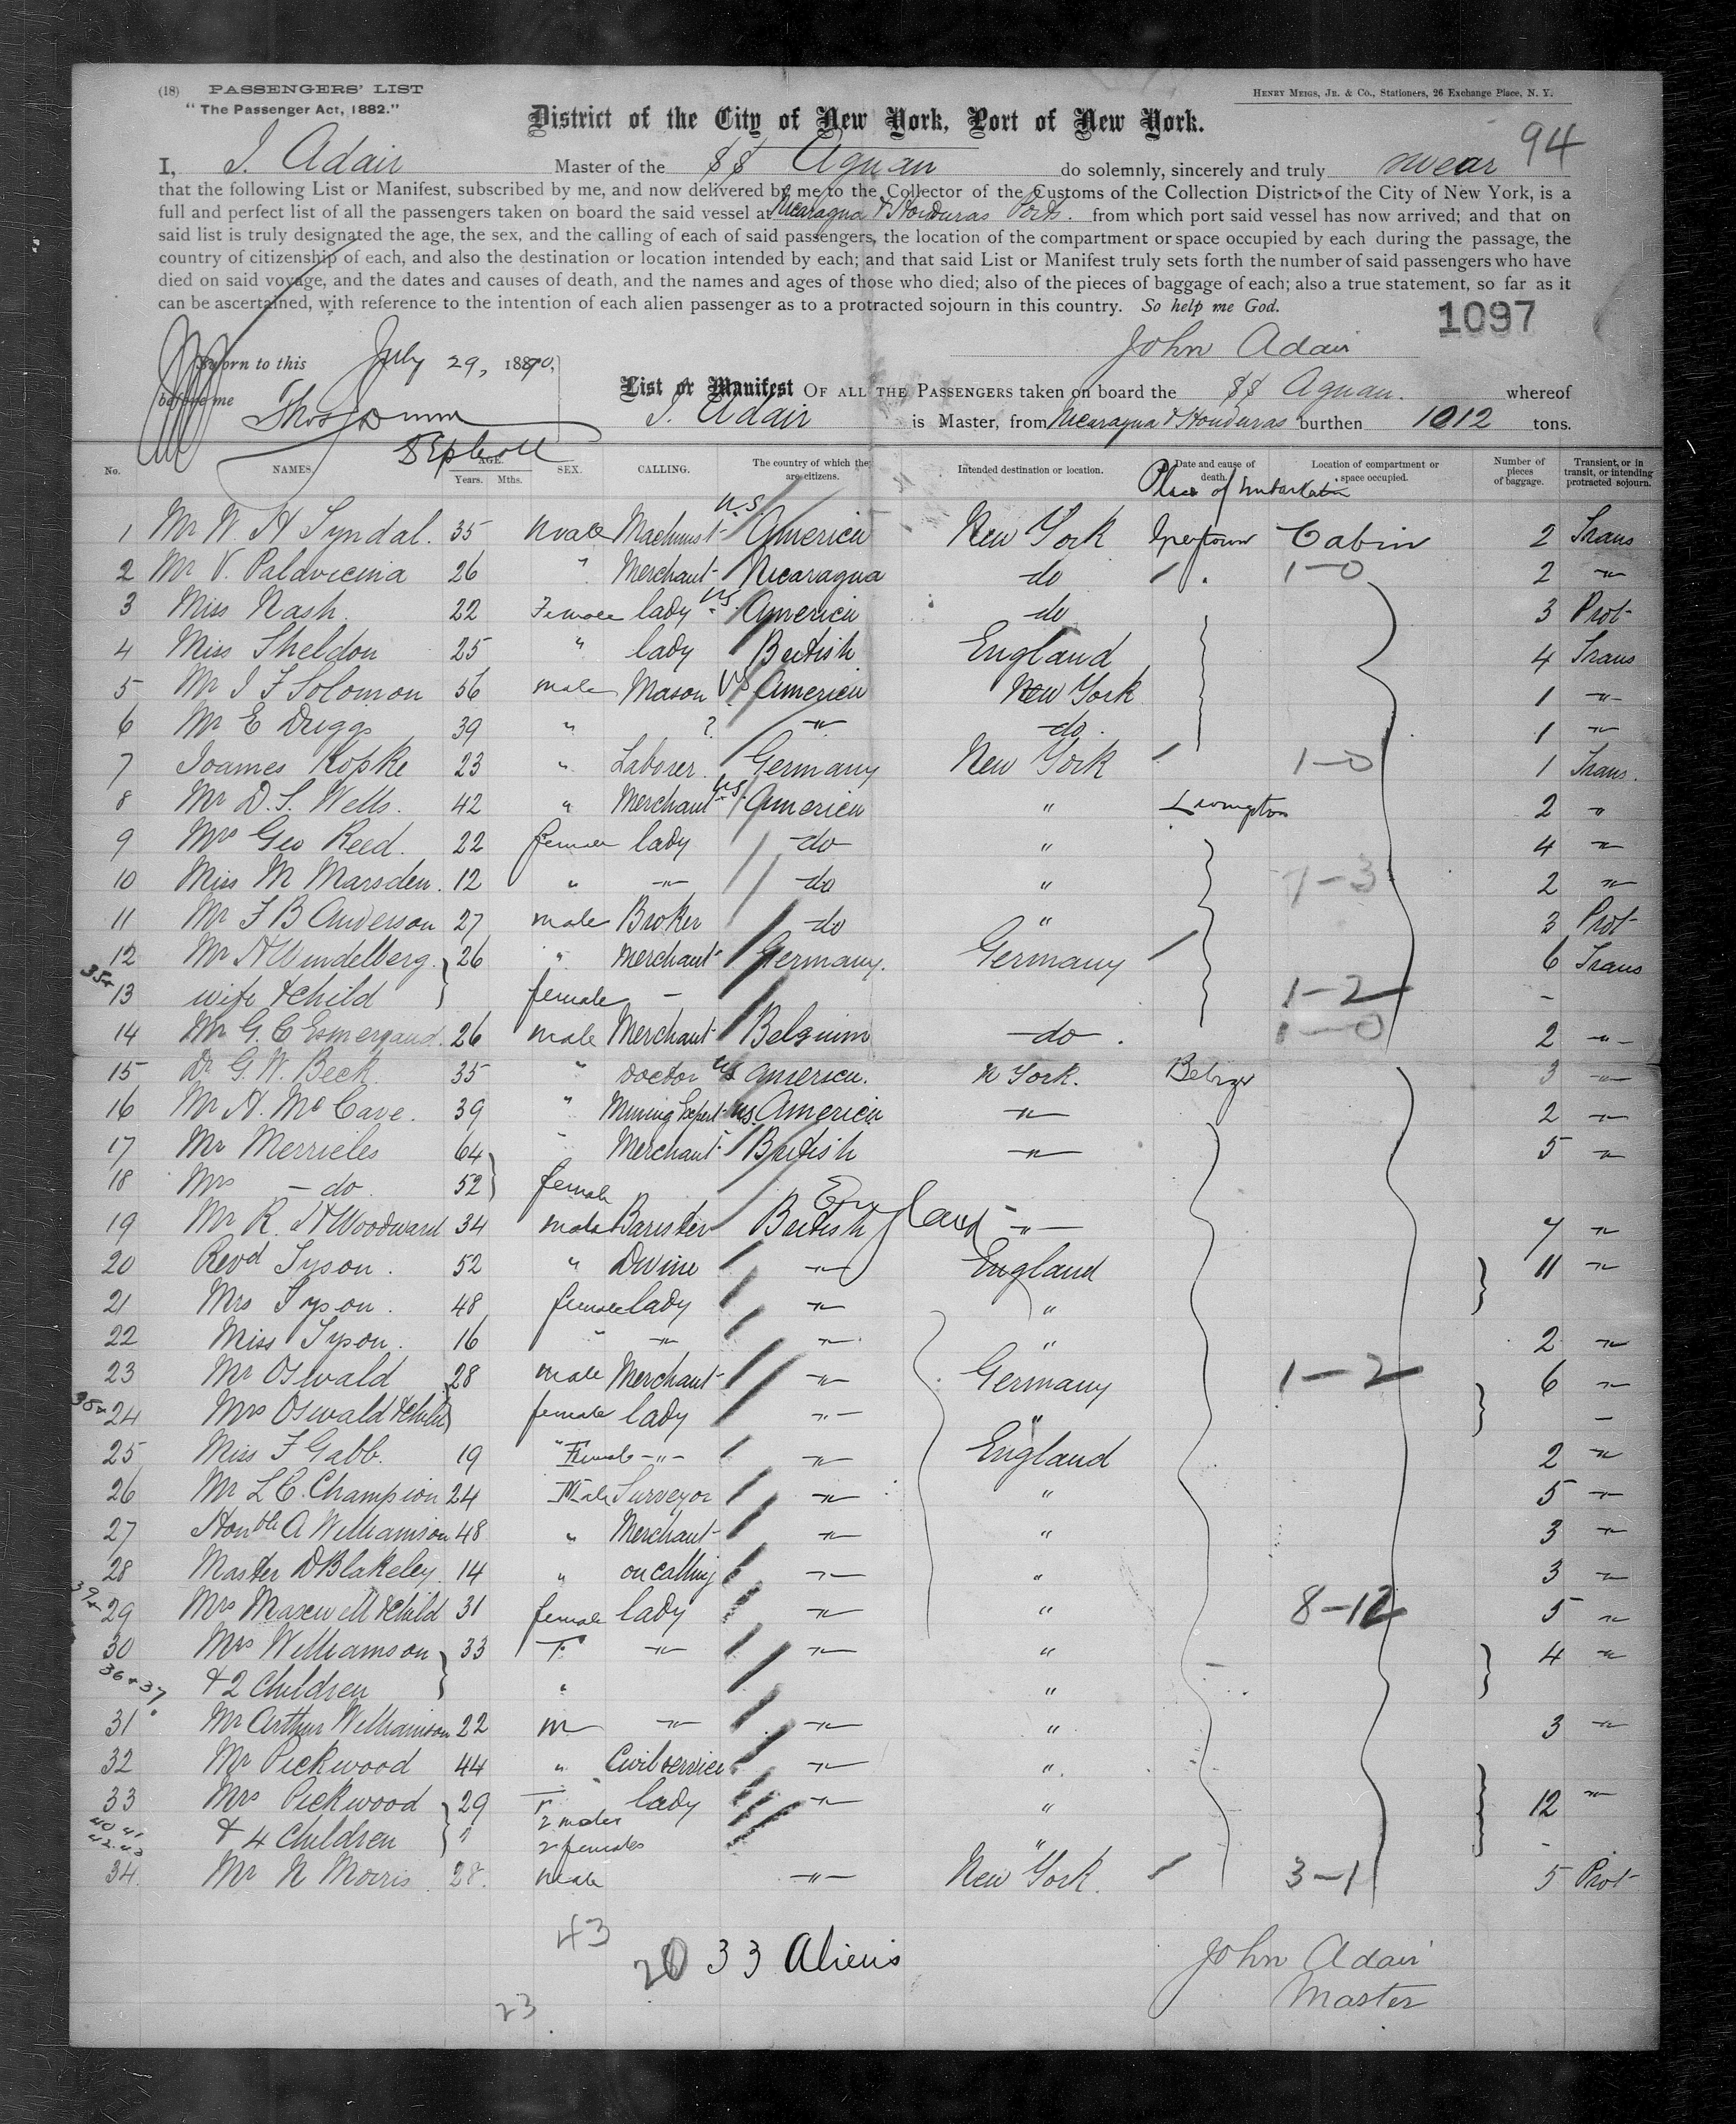 (18) PASSENGERS' LIST
"The Passenger Act, 1882."
HENRY MEIGS, JR. & CO., Stationers, 26 Exchange Place, N. Y.
District of the City of New York, Port of New York.
94
I, J. Adair Master of the SS Aguan do solemnly, sincerely and truly swear
that the following List or Manifest, subscribed by me, and now delivered by me to the Collector of the Customs of the Collection District of the City of New York, is a
full and perfect list of all the passengers taken on board the said vessel at Nicaragua & Honduras Ports. from which port said vessel has now arrived; and that on
said list is truly designated the age, the sex, and the calling of each of said passengers, the location of the compartment or space occupied by each during the passage, the
country of citizenship of each, and also the destination or location intended by each; and that said List or Manifest truly sets forth the number of said passengers who have
died on said voyage, and the dates and causes of death, and the names and ages of those who died; also of the pieces of baggage of each; also a true statement, so far as it
can be ascertained, with reference to the intention of each alien passenger as to a protracted sojourn in this country. So help me God.
1097
John Adair
Sworn to this July 29, 1890,
before me
List or Manifest OF ALL THE PASSENGERS taken on board the SS Aguan. whereof
J. Adair is Master, from Nicaragua & Honduras burthen 1012 tons.
No. NAMES. AGE. Years. Mths. SEX. CALLING. The country of which they are citizens. Intended destination or location. Date and cause of death. Location of compartment or space occupied. Number of pieces of baggage. Transient, or in transit, or intending protracted sojourn.
Place of Embarkation
1 Mr W. H Tyndal. 35 Male Machinist U.S. America New York Greytown Cabin 2 Trans
2 Mr V. Palavicina 26 " Merchant Nicaragua do 1-0 2 "
3 Miss Nash 22 Female lady US. America do 3 Prot
4 Miss Sheldon 25 " lady British England 4 Trans
5 Mr J F Solomon 56 male Mason US America New York 1 "
6 Mr E Driggs 39 " ? " do. 1 "
7 Joames Kopke 23 " Laborer Germany New York 1-0 1 Trans.
8 Mr D. S. Wells. 42 " Merchant US. America " Livingston 2 "
9 Mrs Geo Reed. 22 female lady do " 4 "
10 Miss M Marsden. 12 " " do " 1-3 2 "
11 Mr F B Anderson 27 male Broker do " 3 Prot
12 Mr H Windelberg. 26 " Merchant Germany. Germany 6 Trans
35+
13 wife & child female - 1-2 -
14 Mr G. C 26 male Merchant Belgium do. 1-0 2 "
15 Dr G. W. Beck 35 " Doctor US America. N York. Belize 3 "
16 Mr H. McCave. 39 " Mining Expert US. America " 2 "
17 Mr Merrieles 64 " Merchant British " 5 "
18 Mrs do 52 female
England
19 Mr R. H Woodward 34 male Barister British " 7 "
20 Revd Tyson. 52 " Divine " England 11 "
21 Mrs Tyson. 48 female lady " "
22 Miss Tyson. 16 " " " " 2 "
23 Mr Oswald 28 male Merchant " Germany 1-2 6 "
24 Mrs Oswald & child female lady " " -
25 Miss F Gabb. 19 " Female " " England 2 "
26 Mr L C. Champion 24 Male Surveyor " " 5 "
27 Honble A Williamson 48 " Merchant " " 3 "
28 Master D Blakeley. 14 " " " 3 "
39+
29 Mrs Maxwell & child 31 female lady " " 8-12 5 "
30 Mrs Williamson 33 F " " " 4 "
36+37
& 2 Children " "
31 Mr Arthur Williamson 22 m " " " 3 "
32 Mr Pickwood 44 " Civil service " "
33 Mrs Pickwood 29 F lady " " 12 "
40 41
42. 43
& 4 Children " 2 males
2 females " -
34. Mr N Morris 28. Male " New York. 3-1 5 Prot
43
20 33 Aliens
23
John Adair
Master